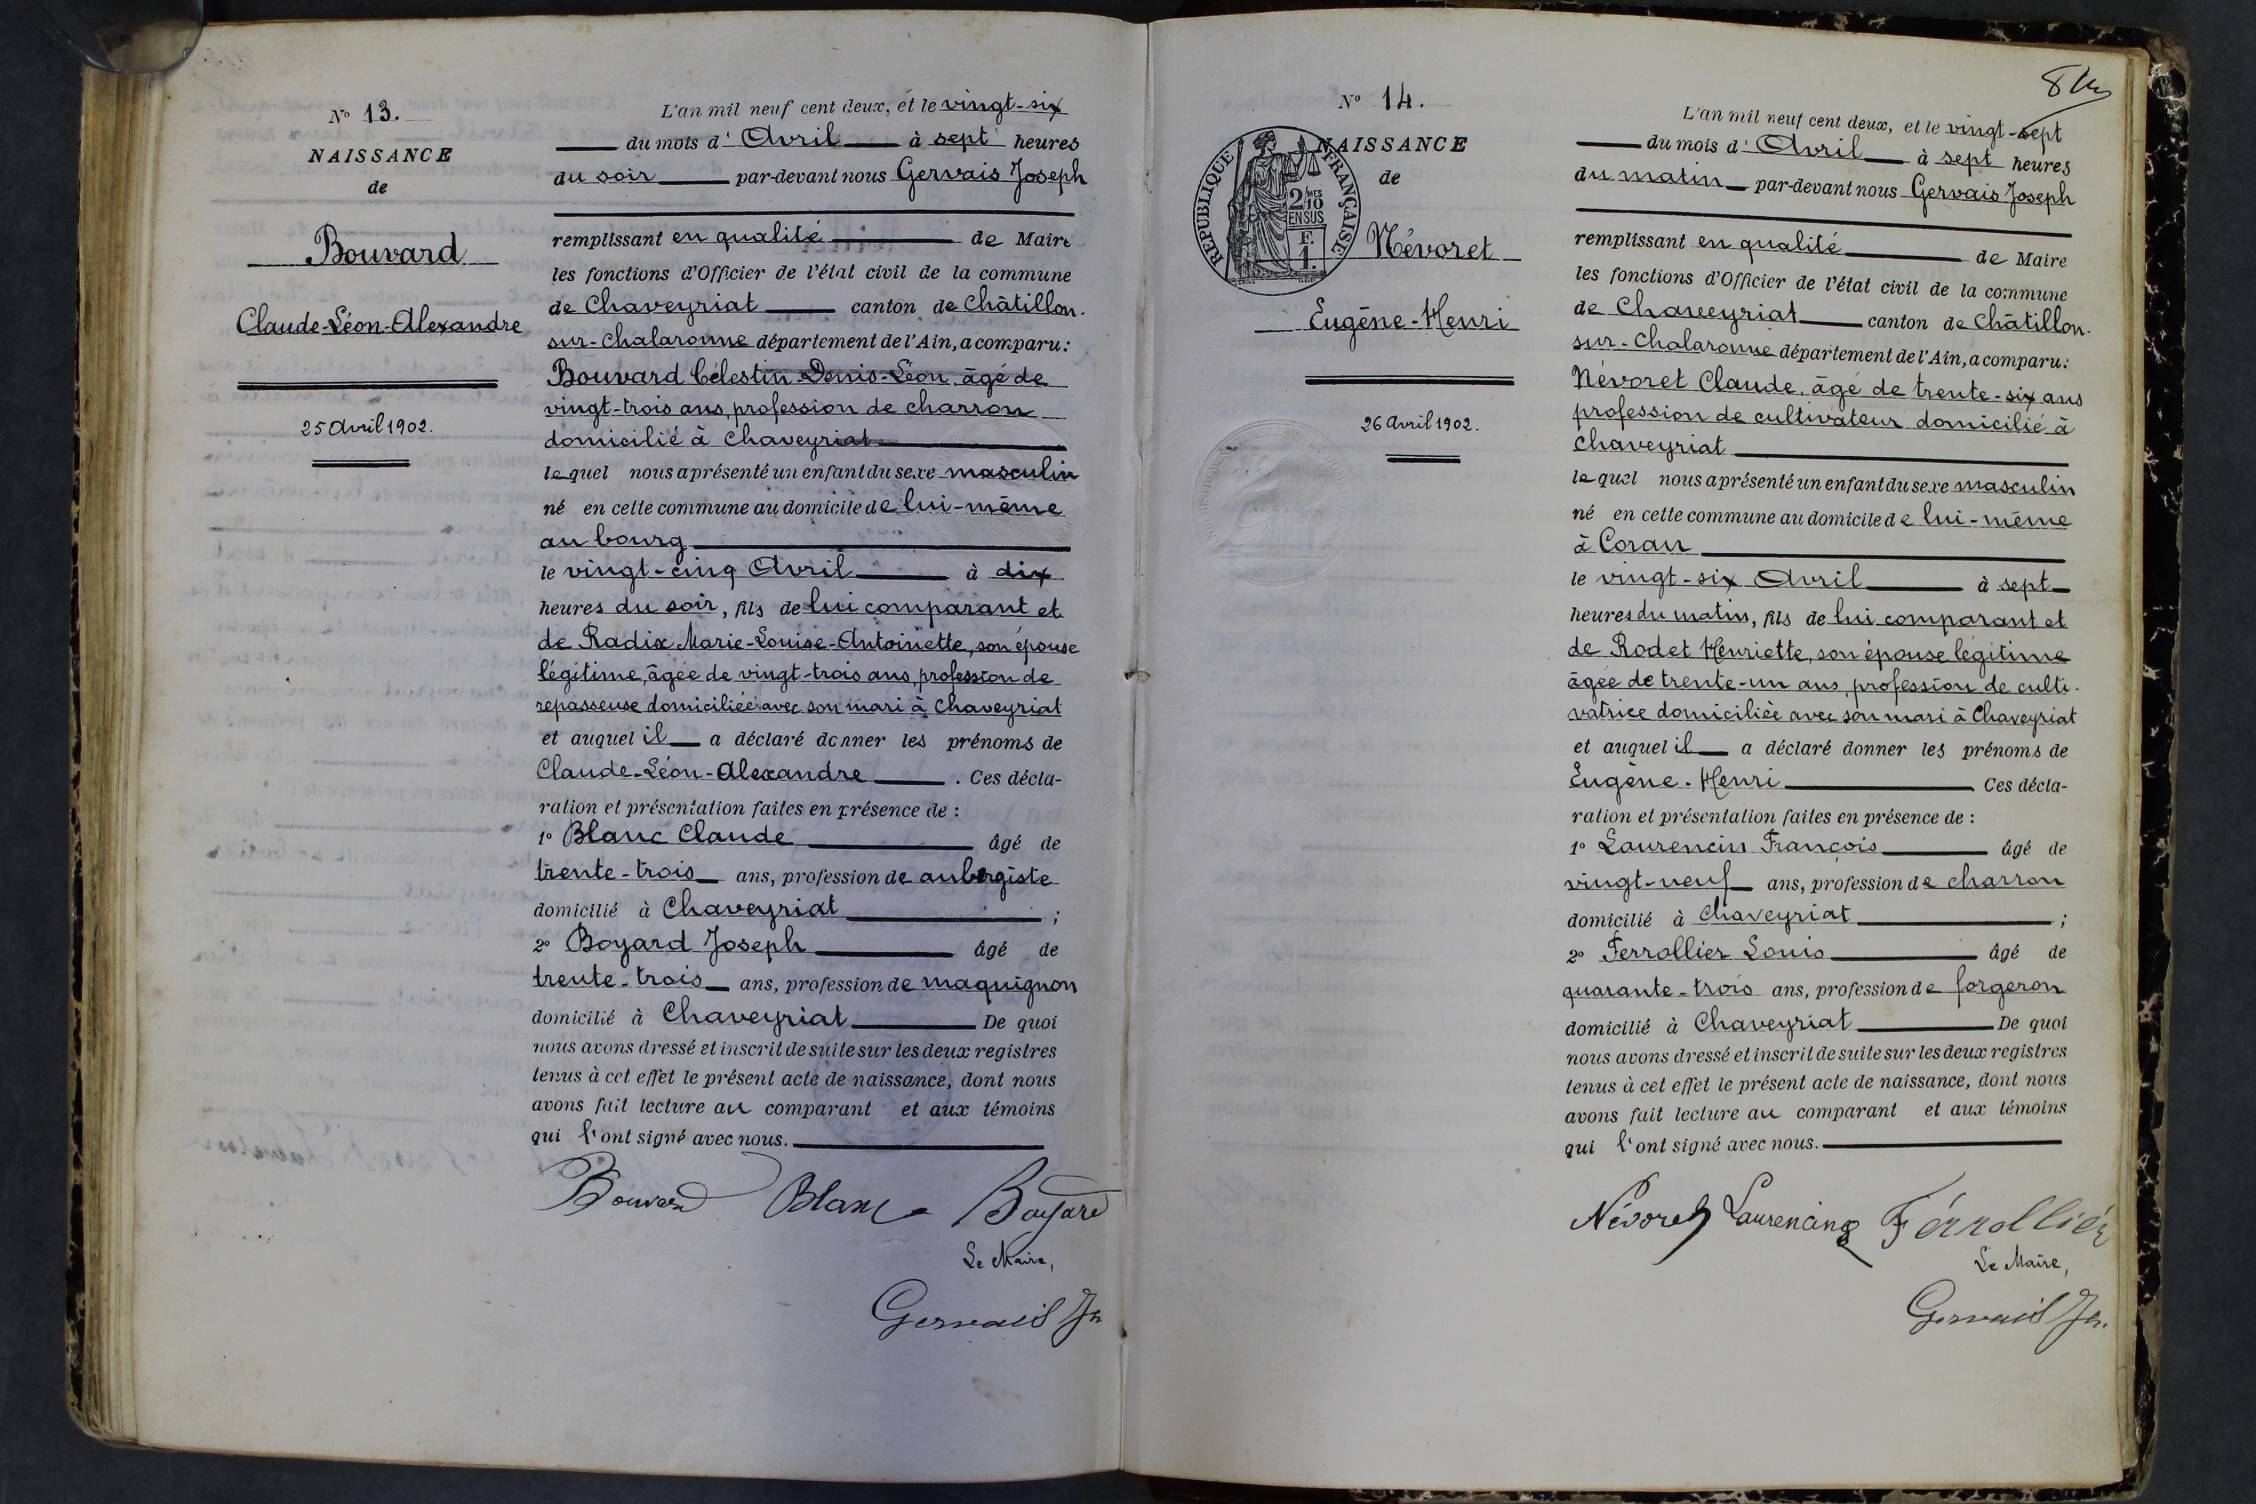 N° 13.
NAISSANCE
de
Bouvard
Claude-Léon-Alexandre
25 Avril 1902.
L'an mil neuf cent deux, et le vingt-six
du mois d' Avril à sept heures
du soir par-devant nous Gervais Joseph
remplissant en qualité de Maire
les fonctions d'Officier de l'état civil de la commune
de Chaveyriat canton de Châtillon-
sur-Chalaronne département de l'Ain, a comparu :
Bouvard Célestin Denis-Léon, âgé de
vingt-trois ans, profession de charron
domicilié à Chaveyriat
lequel nous a présenté un enfant du sexe masculin
né en cette commune au domicile de lui-même
au bourg
le vingt-cinq Avril à dix
heures du soir, fils de lui comparant et
de Radix Marie-Louise-Antoinette, son épouse
légitime, âgée de vingt-trois ans, profession de
repasseuse domiciliée avec son mari à Chaveyriat
et auquel il a déclaré donner les prénoms de
Claude-Léon-Alexandre . Ces décla-
ration et présentation faites en présence de :
1° Blanc Claude âgé de
trente-trois ans, profession de aubergiste
domicilié à Chaveyriat ;
2° Boyard Joseph âgé de
trente-trois ans, profession de maquignon
domicilié à Chaveyriat De quoi
nous avons dressé et inscrit de suite sur les deux registres
tenus à cet effet le présent acte de naissance, dont nous
avons fait lecture au comparant et aux témoins
qui l'ont signé avec nous.
Bouvard Blanc Boyard
Le Maire,
Gervais Jh
N° 14.
NAISSANCE
de
RÉPUBLIQUE FRANÇAISE
2/10 MES
EN SUS
F.
1.
Névoret
Eugène-Henri
26 Avril 1902.
L'an mil neuf cent deux, et le vingt-sept
du mois d' Avril à sept heures
du matin par-devant nous Gervais Joseph
remplissant en qualité de Maire
les fonctions d'Officier de l'état civil de la commune
de Chaveyriat canton de Châtillon-
sur-Chalaronne département de l'Ain, a comparu :
Névoret Claude, âgé de trente-six ans
profession de cultivateur domicilié à
Chaveyriat
lequel nous a présenté un enfant du sexe masculin
né en cette commune au domicile de lui-même
à Coran
le vingt-six Avril à sept
heures du matin, fils de lui comparant et
de Rodet Henriette, son épouse légitime
âgée de trente-un ans, profession de culti-
vatrice domiciliée avec son mari à Chaveyriat
et auquel il a déclaré donner les prénoms de
Eugène-Henri Ces décla-
ration et présentation faites en présence de :
1° Laurencin François âgé de
vingt-neuf ans, profession de charron
domicilié à Chaveyriat ;
2° Ferrollier Louis âgé de
quarante-trois ans, profession de forgeron
domicilié à Chaveyriat De quoi
nous avons dressé et inscrit de suite sur les deux registres
tenus à cet effet le présent acte de naissance, dont nous
avons fait lecture au comparant et aux témoins
qui l'ont signé avec nous.
Névoret Laurencin Férrolliér
Le Maire,
Gervais Jh.